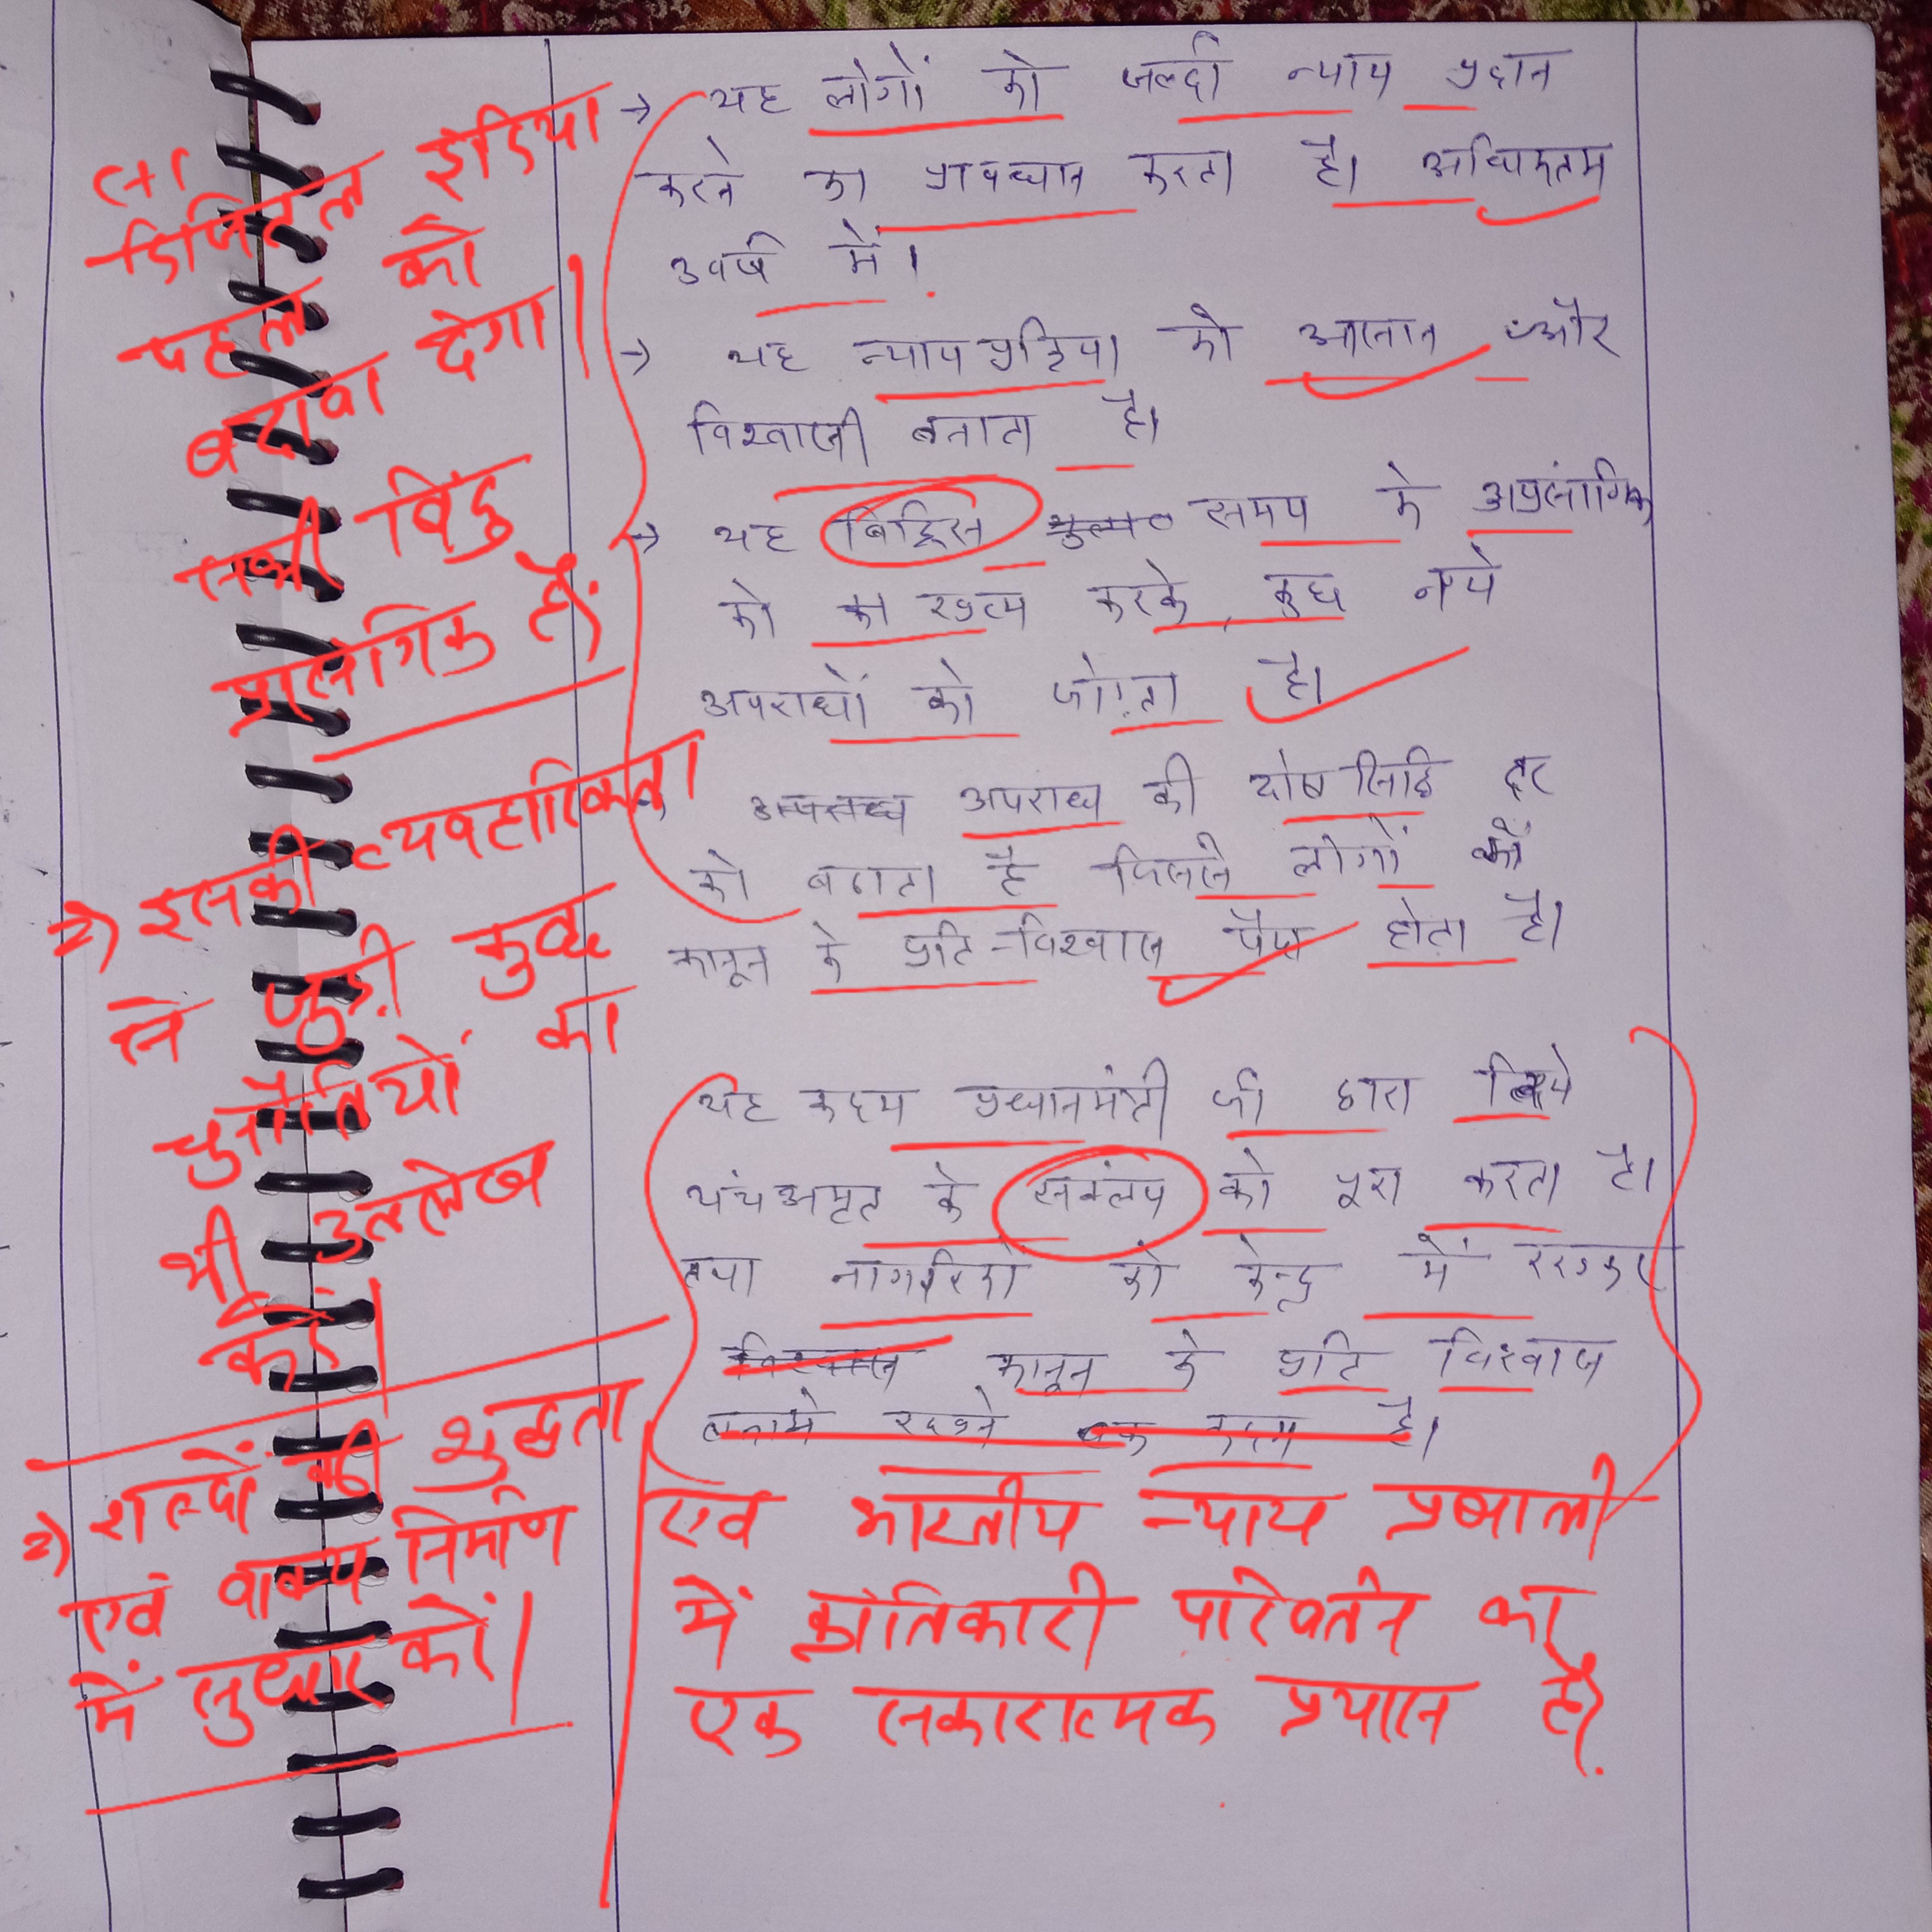 → यह लोगों को जल्दी न्याय प्रदान
करने का प्रावधान करता है। अधिकतम
3 वर्ष में।
→ यह न्याय प्रक्रिया को आसान और
विश्वासी बनाता है।
→ यह ब्रिटिस समय के अप्रसांगिक
को खत्म करके, कुछ नये
अपराधों को जोड़ता है।
अपराध की दोषसिद्धि दर
को बढाता है जिससे लोगों को
कानून के प्रति विश्वास पैदा होता है।
यह कदम प्रधानमंत्री जी द्वारा किये
पंचअमृत के सकंलप को पूरा करता है।
तथा नागरिको को केन्द्र में रखकर
कानून के प्रति विश्वास
बनाये रखने का कदम है।
एवं भारतीय न्याय प्रणाली
में क्रांतिकारी परिवर्तन का
एक सकारात्मक प्रयास है।
डिजिटल इंडिया
पहल को
बढ़ावा देगा।
सभी बिंदु
प्रासंगिक हैं,
2) इसकी व्यवहारिकता
से जुड़ी कुछ
चुनौतियों का
भी उल्लेख
करें।
2) शब्दों की शुद्धता
एवं वाक्य निर्माण
में सुधार करें।